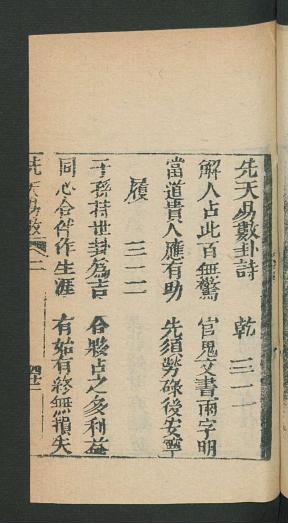 先天易數卦詩　乾　三一一
解人占此百無驚　官鬼文書兩字明
當道貴人應有助　先須勞碌後安寧
履　三一二
子孫持世卦為吉　合夥占之多利益
同心合伴作生涯　有始有終無損失
先天易數　二